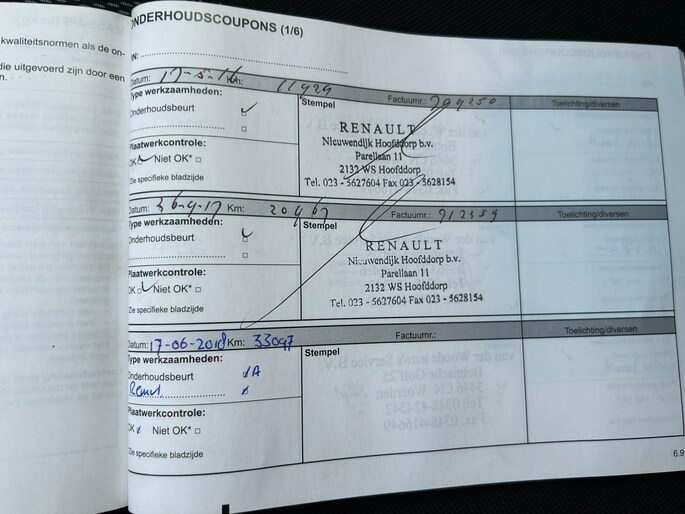 kwaliteitsnormen als de on-
die uitgevoerd zijn door een
n.
ONDERHOUDSCOUPONS (1/6)
VIN:
Datum: Km: 11929 Factuurnr.: 299250 Toelichting/diversen
Type werkzaamheden:
Stempel
Onderhoudsbeurt
RENAULT
Nieuwendijk Hoofddorp b.v.
Parellaan 11
2132 WS Hoofddorp
Tel. 023 - 5627604 Fax 023 - 5628154
Plaatwerkcontrole:
OK Niet OK*
Zie specifieke bladzijde
Datum: Km: Factuurnr.: 912559 Toelichting/diversen
Type werkzaamheden:
Stempel
Onderhoudsbeurt
RENAULT
Nieuwendijk Hoofddorp b.v.
Parellaan 11
2132 WS Hoofddorp
Tel. 023 - 5627604 Fax 023 - 5628154
Plaatwerkcontrole:
OK Niet OK*
Zie specifieke bladzijde
Datum: 17-06-2018 Km: 33097 Factuurnr.: Toelichting/diversen
Type werkzaamheden:
Stempel
Onderhoudsbeurt A
Plaatwerkcontrole:
OK Niet OK*
Zie specifieke bladzijde
6.9